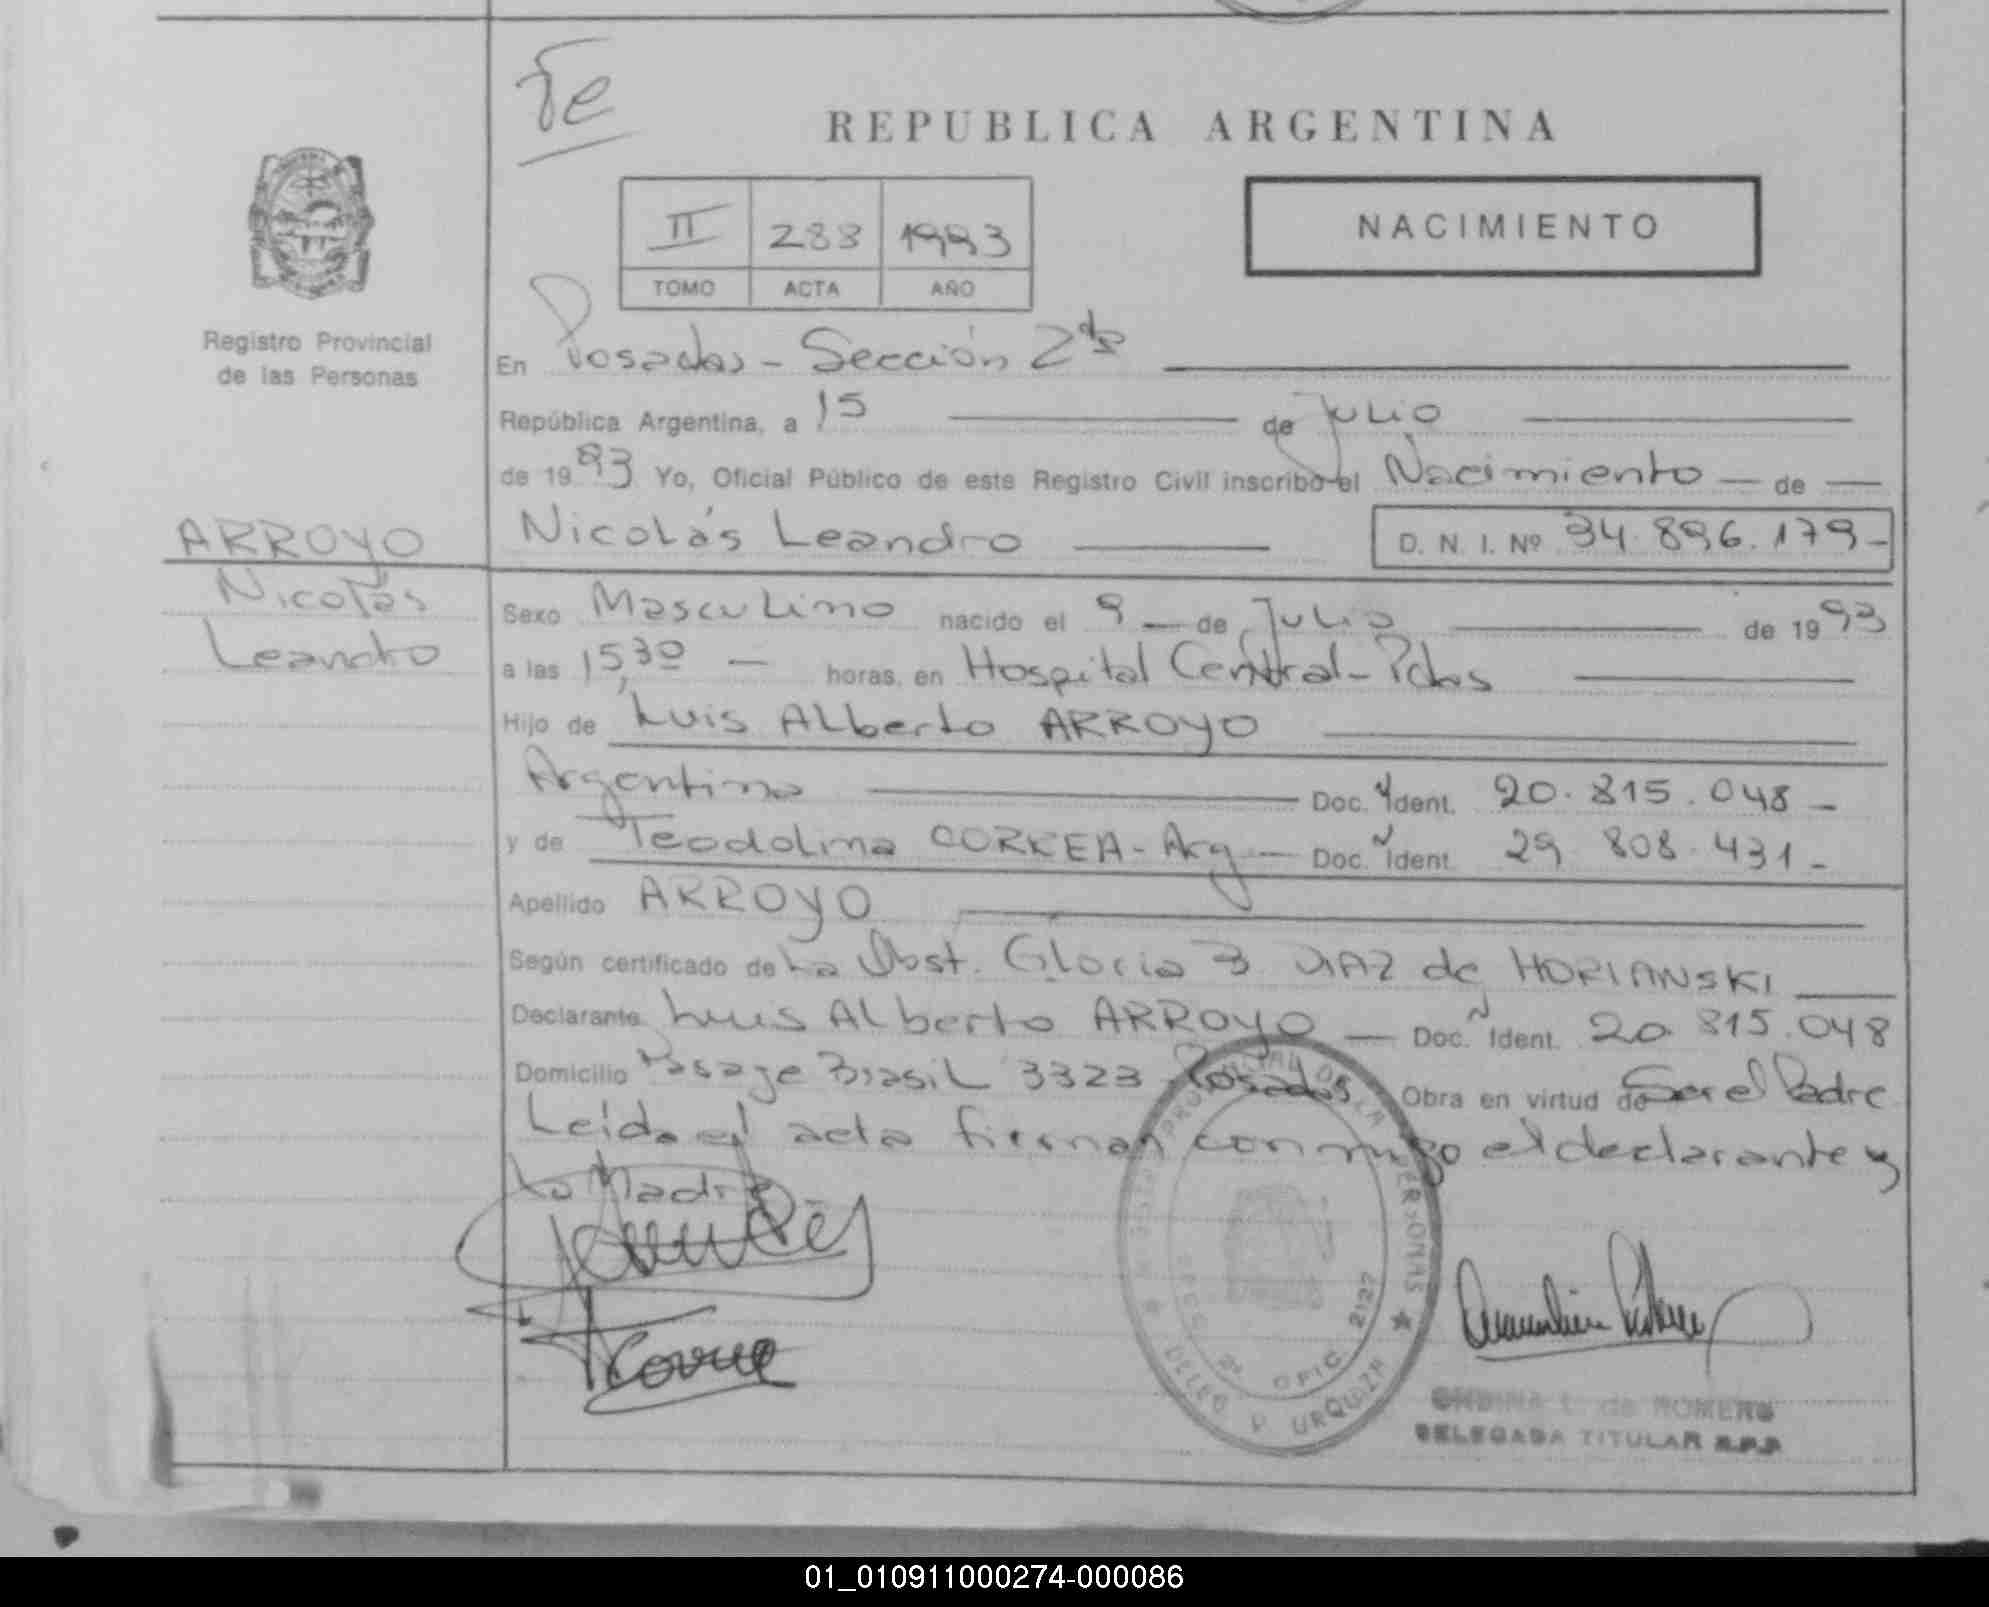 Te
REPUBLICA ARGENTINA
II 288 1993
TOMO ACTA AÑO
NACIMIENTO
Registro Provincial
de las Personas
En Posadas - Sección 2da
República Argentina, a 15 de Julio
de 1993 Yo, Oficial Público de este Registro Civil inscribo el Nacimiento — de —
ARROYO
Nicolás
Leandro
Nicolás Leandro D. N. I. Nº 34.896.179-
Sexo Masculino nacido el 9 — de Julio de 1993
a las 15,30 — horas, en Hospital Central - Pdas
Hijo de Luis Alberto ARROYO
Argentino Doc. Ident. 20.815.048-
y de Teodolina CORREA - Arg — Doc. Ident. 29.808.431-
Apellido ARROYO
Según certificado de La Obst. Gloria B. DIAZ de HORIANSKI
Declarante Luis Alberto ARROYO — Doc. Ident. 20.815.048
Domicilio Pasaje Brasil 3323 - Posadas Obra en virtud de Ser el Padre
Leida el acta firman conmigo el declarante y
La Madre
PERSONAS
OFIC. 2127
URQUIZA
de ROMERO
DELEGADA TITULAR R.P.P.
01_010911000274-000086